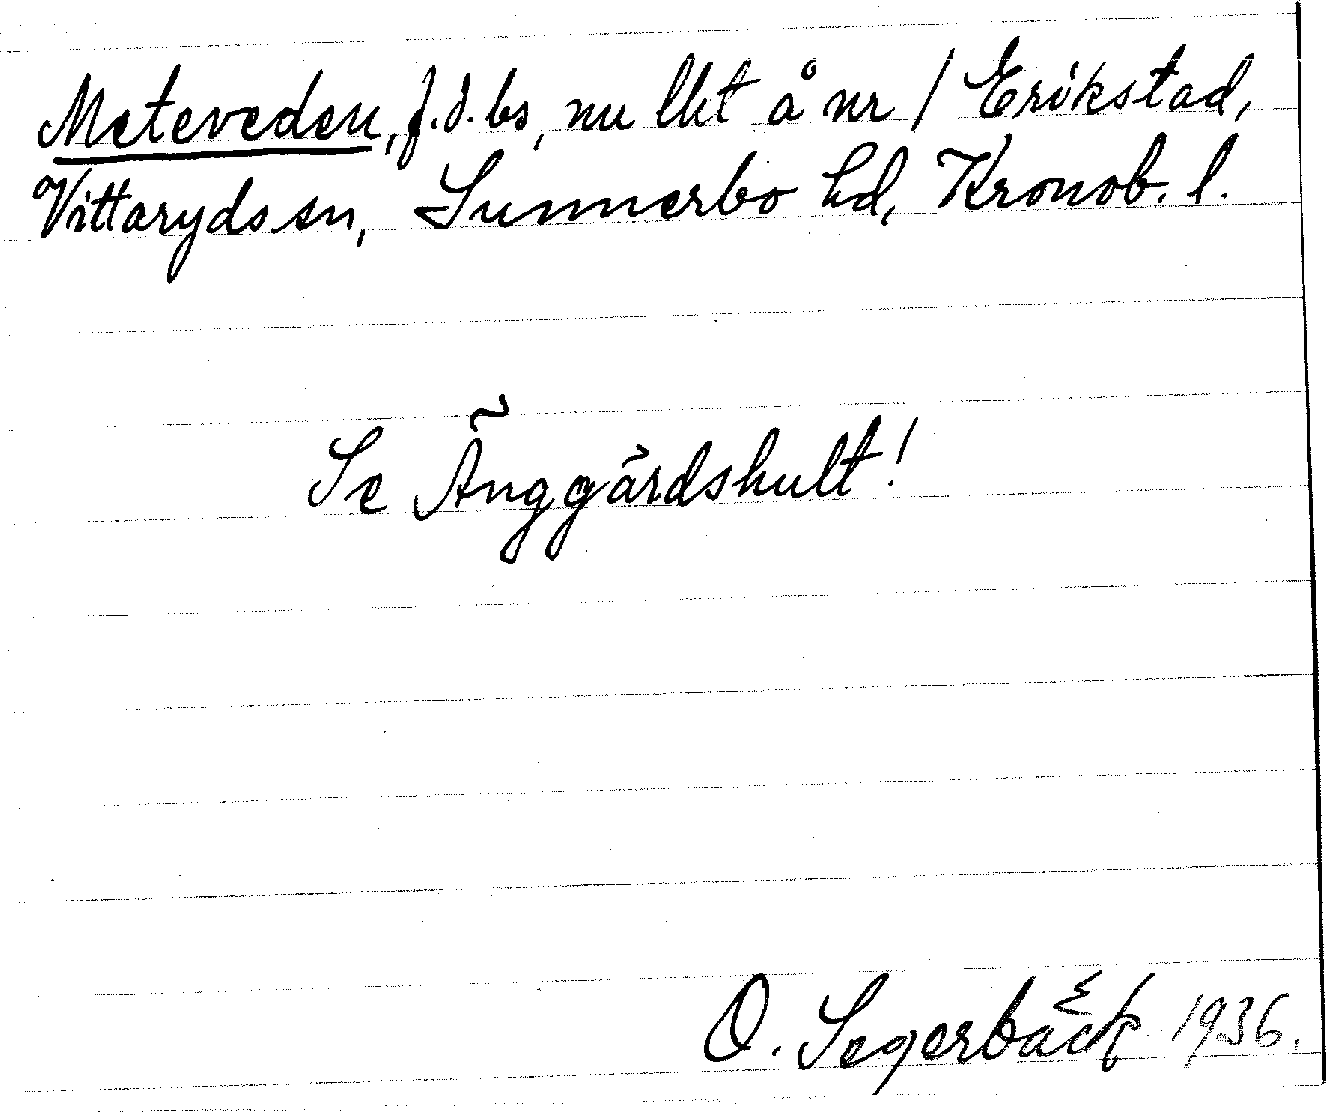 Meteveden, f.d. bs, nu lht å nr 1 Erikstad,
Vittaryds sn, Sunnerbo hd, Kronob. l.
Se Änggårdshult!
O. Segerbäck 1936.